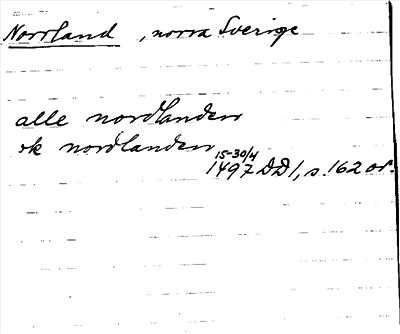 Norrland, norra Sverige
alle nordlanden
ok nordlanden
15-30/4
1497 DD 1, s. 162 or.